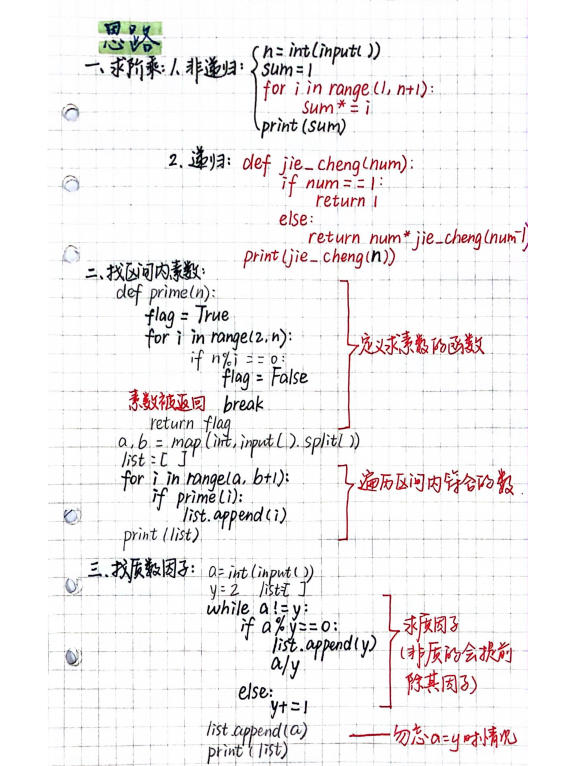 思路
一、求阶乘: 1、非递归: n=int(input())
sum=1
for i in range(1, n+1):
sum*=i
print(sum)
2、递归: def jie_cheng(num):
if num==1:
return 1
else:
return num*jie_cheng(num-1)
print(jie_cheng(n))
二、找区间内素数:
def prime(n):
flag = True
for i in range(2,n):
if n%i==0:
flag = False
素数被返回 break
return flag
定义求素数的函数
a,b = map(int,input().split())
list=[ ]
for i in range(a, b+1):
if prime(i):
list.append(i)
print(list)
遍历区间内符合的数.
三、找质数因子: a=int(input())
y=2 list[ ]
while a!=y:
if a%y==0:
list.append(y)
a/y
else:
y+=1
求质因子
(非质的会提前
除其因子)
list.append(a) ——勿忘a=y时情况
print(list)